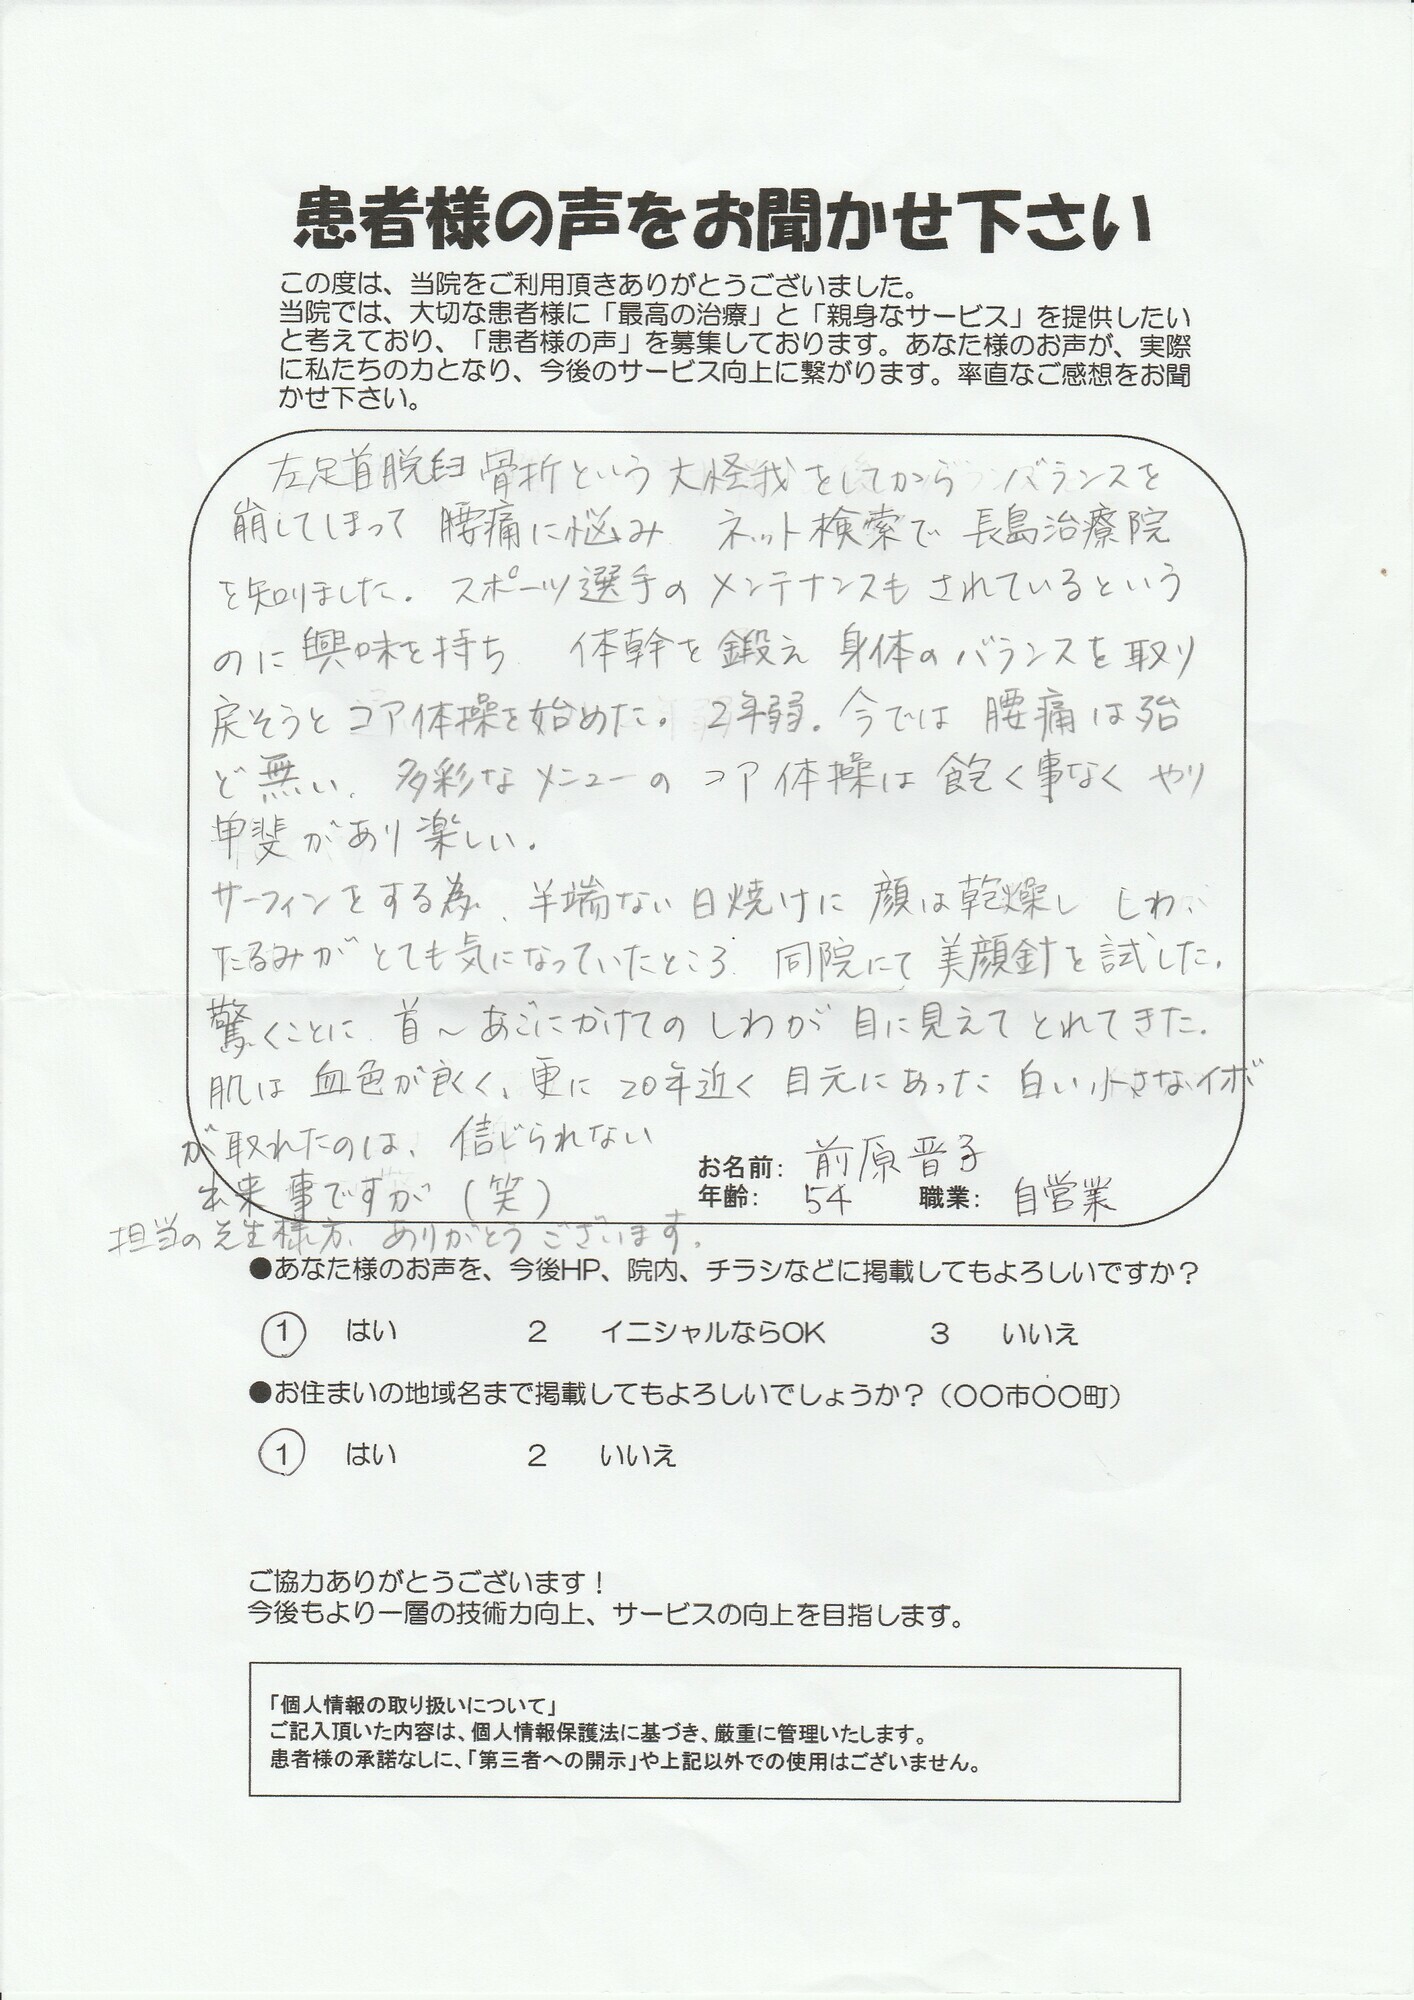 患者様の声をお聞かせ下さい
この度は、当院をご利用頂きありがとうございました。
当院では、大切な患者様に「最高の治療」と「親身なサービス」を提供したい
と考えており、「患者様の声」を募集しております。あなた様のお声が、実際
に私たちの力となり、今後のサービス向上に繋がります。率直なご感想をお聞
かせ下さい。
左足首脱臼骨折という大怪我をしてからバランスを
崩してしまって腰痛に悩み ネット検索で 長島治療院
を知りました。スポーツ選手のメンテナンスもされているという
のに興味を持ち 体幹を鍛え 身体のバランスを取り
戻そうと コア体操を始めた。2年弱。今では 腰痛は殆
ど無い。多彩なメニューの コア体操は 飽く事なく やり
甲斐があり楽しい。
サーフィンをする為、半端ない日焼けに 顔は乾燥し しわ、
たるみが とても気になっていたところ 同院にて 美顔針を試した。
驚くことに 首〜あごにかけての しわが 目に見えて とれてきた。
肌は 血色が良く、更に 20年近く 目元にあった 白い小さなイボ
が取れたのは、信じられない
出来事ですが(笑)
お名前: 前原晋子
年齢: 54 職業: 自営業
担当の先生様方、ありがとうございます。
●あなた様のお声を、今後HP、院内、チラシなどに掲載してもよろしいですか？
1 はい 2 イニシャルならOK 3 いいえ
●お住まいの地域名まで掲載してもよろしいでしょうか？（〇〇市〇〇町）
1 はい 2 いいえ
ご協力ありがとうございます！
今後もより一層の技術力向上、サービスの向上を目指します。
「個人情報の取り扱いについて」
ご記入頂いた内容は、個人情報保護法に基づき、厳重に管理いたします。
患者様の承諾なしに、「第三者への開示」や上記以外での使用はございません。